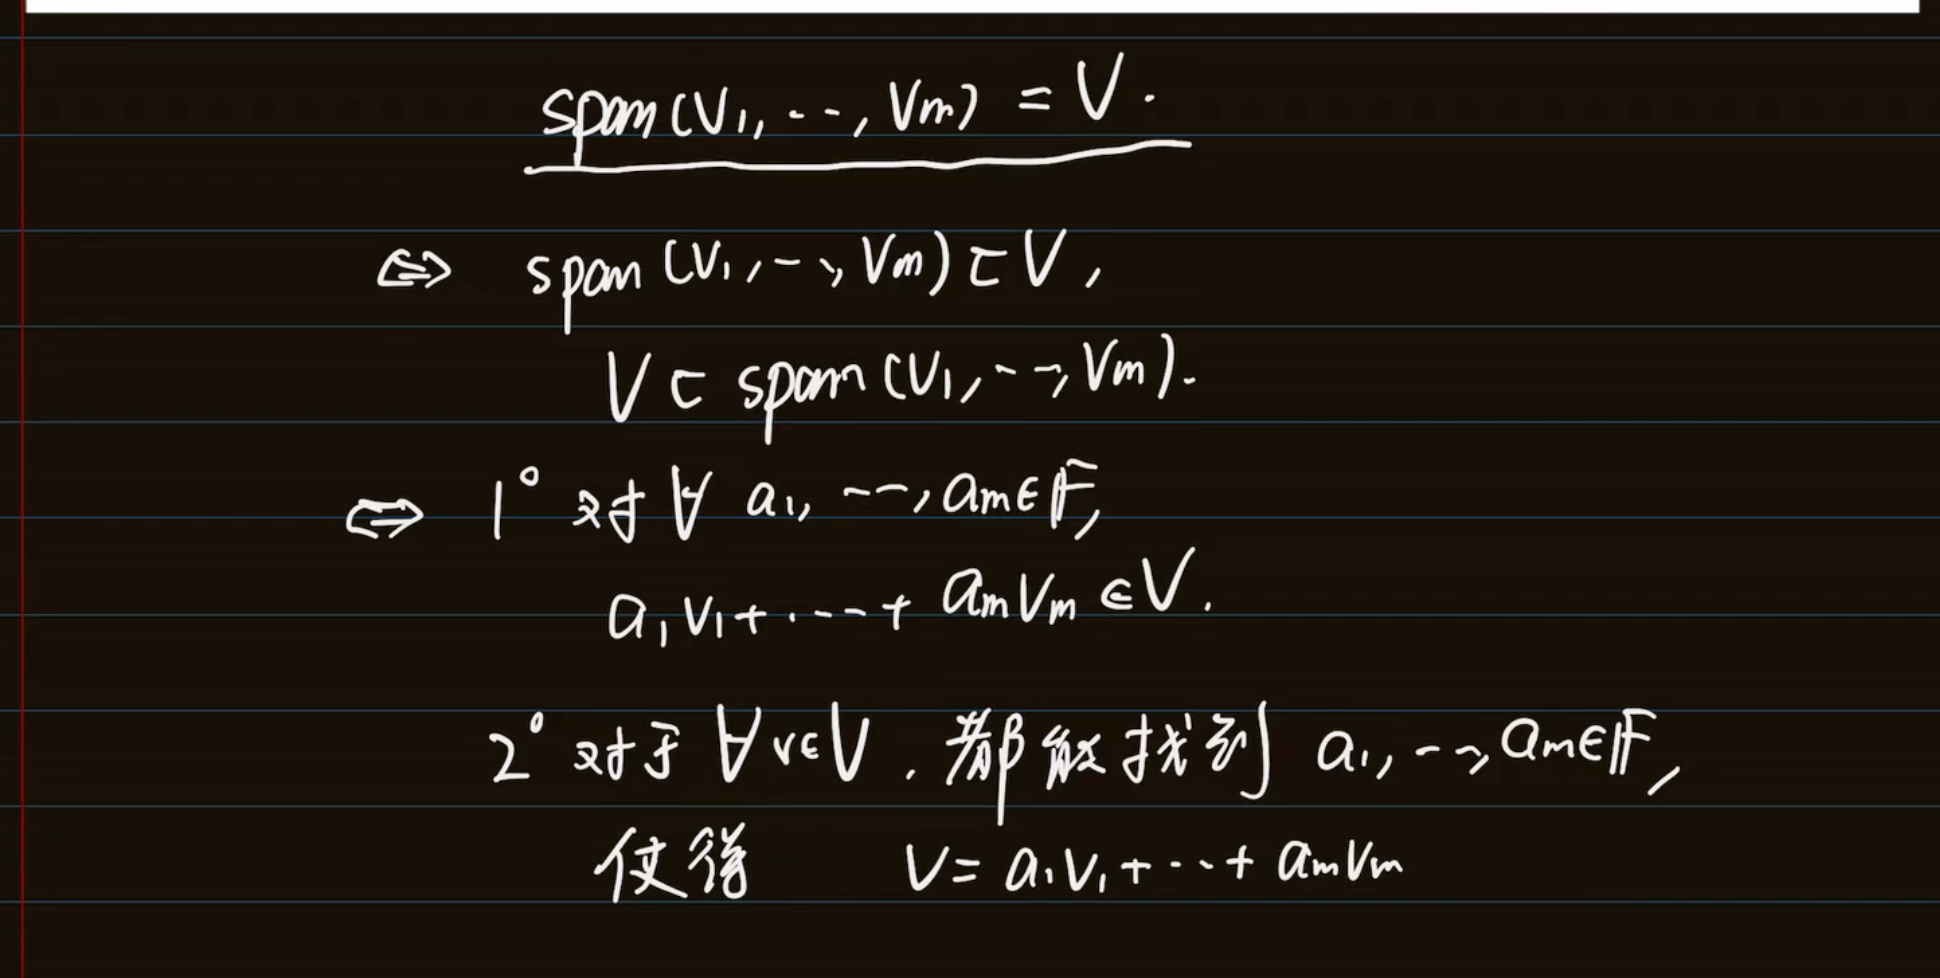 span(v1, ..., vm) = V.
⇔ span(v1, ..., vm) ⊂ V,
V ⊂ span(v1, ..., vm).
⇔ 1° 对 ∀ a1, ..., am ∈ 𝔽,
a1v1 + ... + amvm ∈ V.
2° 对于 ∀ v ∈ V, 都能找到 a1, ..., am ∈ 𝔽,
使得 v = a1v1 + ... + amvm